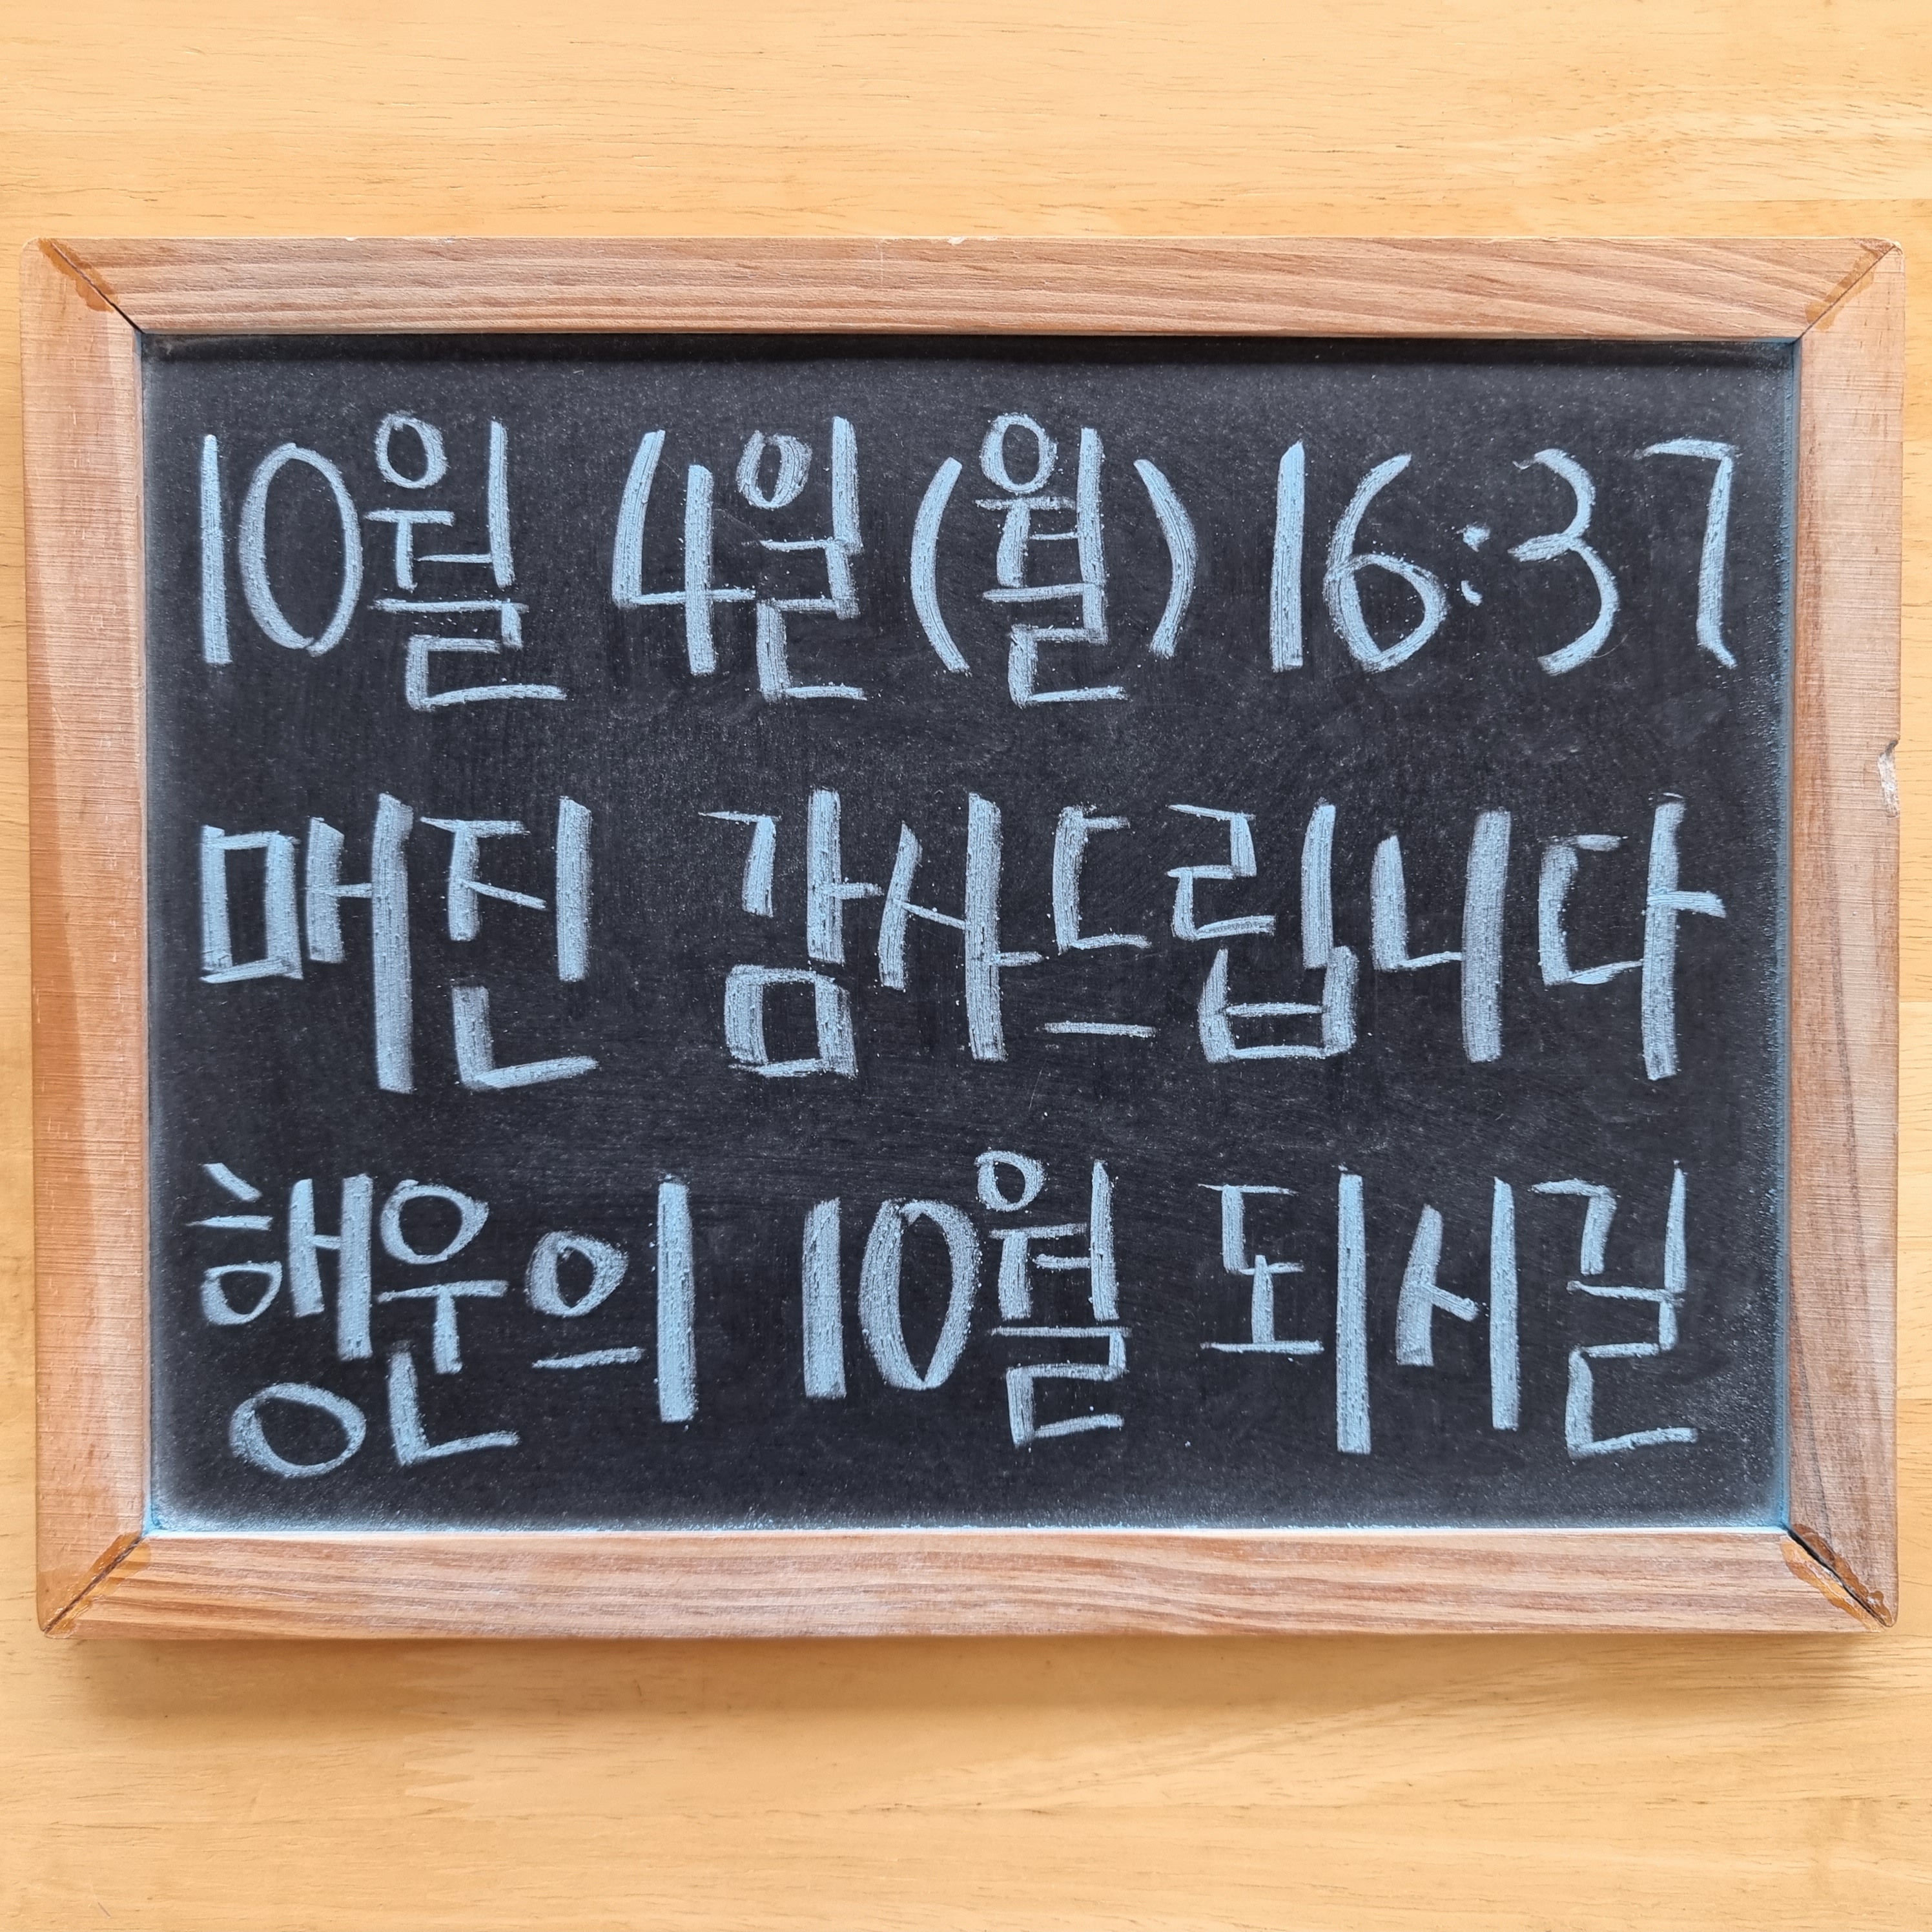 10월 4일(월) 16:37
매진 감사드립니다
행운의 10월 되시길